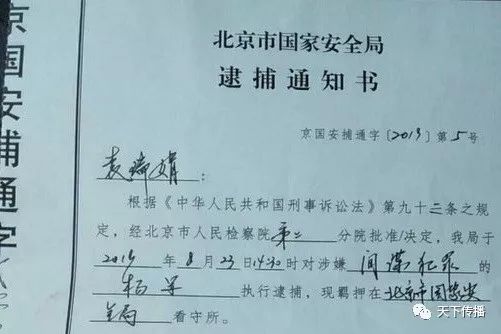 京国安捕通字
北京市国家安全局
逮捕通知书
京国安捕通字〔2019〕第5号
袁瑞娟：
根据《中华人民共和国刑事诉讼法》第九十二条之规
定，经北京市人民检察院第二分院批准/决定，我局于
2019年8月23日14:30时对涉嫌间谍犯罪
的杨军执行逮捕，现羁押在北京市国家安
全局看守所。
天下传播